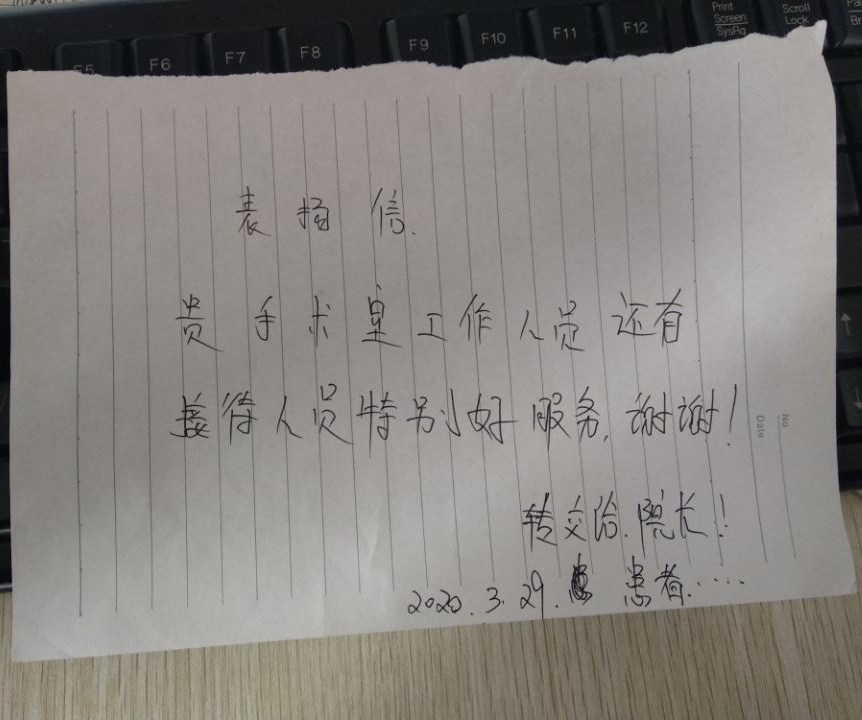 F5 F6 F7 F8 F9 F10 F11 F12 Print Screen SysRq Scroll Lock
表扬信.
贵手术室工作人员还有
接待人员特别好服务,谢谢!
转交给.院长!
2020.3.29. 患者.....
No
Date